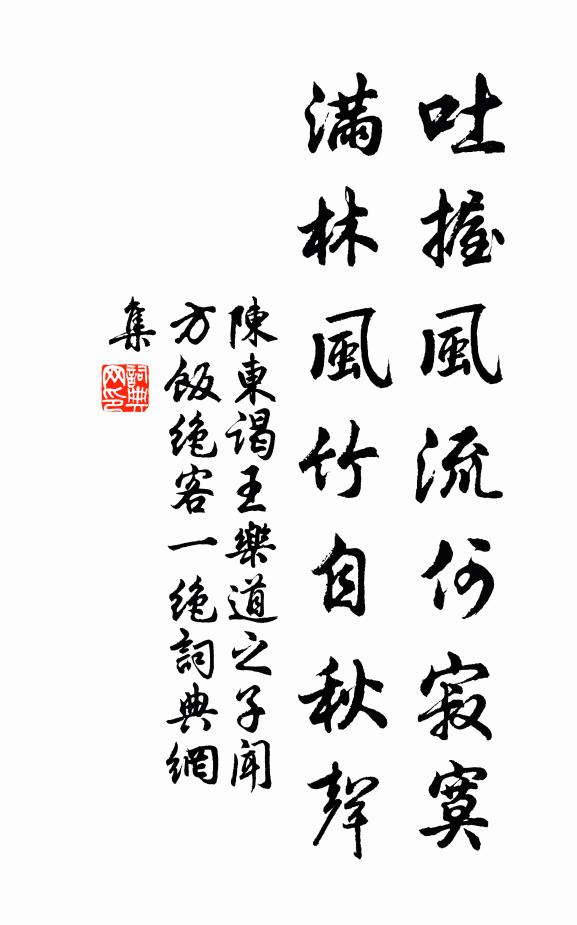 吐握風流何寂寞
滿林風竹自秋聲
陳東謁王樂道之子聞
方飯絶客一絶詞典網
集
詞典
网印